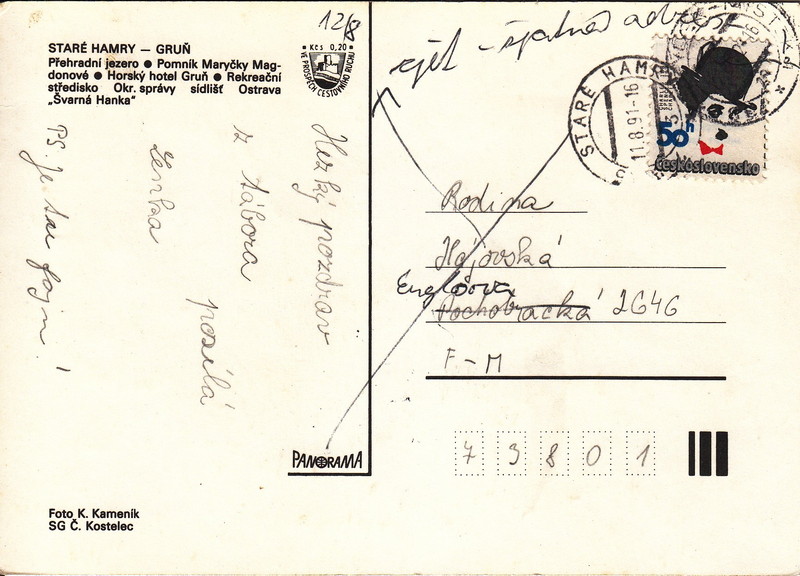 STARÉ HAMRY — GRUŇ
Přehradní jezero ● Pomník Maryčky Mag-
donové ● Horský hotel Gruň ● Rekreační
středisko Okr. správy sídlišť Ostrava
„Švarná Hanka"
12/8
Kčs 0,20
VE PROSPĚCH CESTOVNÍHO RUCHU
Hezký pozdrav
z tábora posílá
Lenka
PS. Je tu fajn!
zpět - špatná adresa
STARÉ HAMRY
11.8.91-16
50h
Československo
Rodina
Hájovská
Englišova
Pochobradká 2646
F-M
73801
PANORAMA
Foto K. Kameník
SG Č. Kostelec